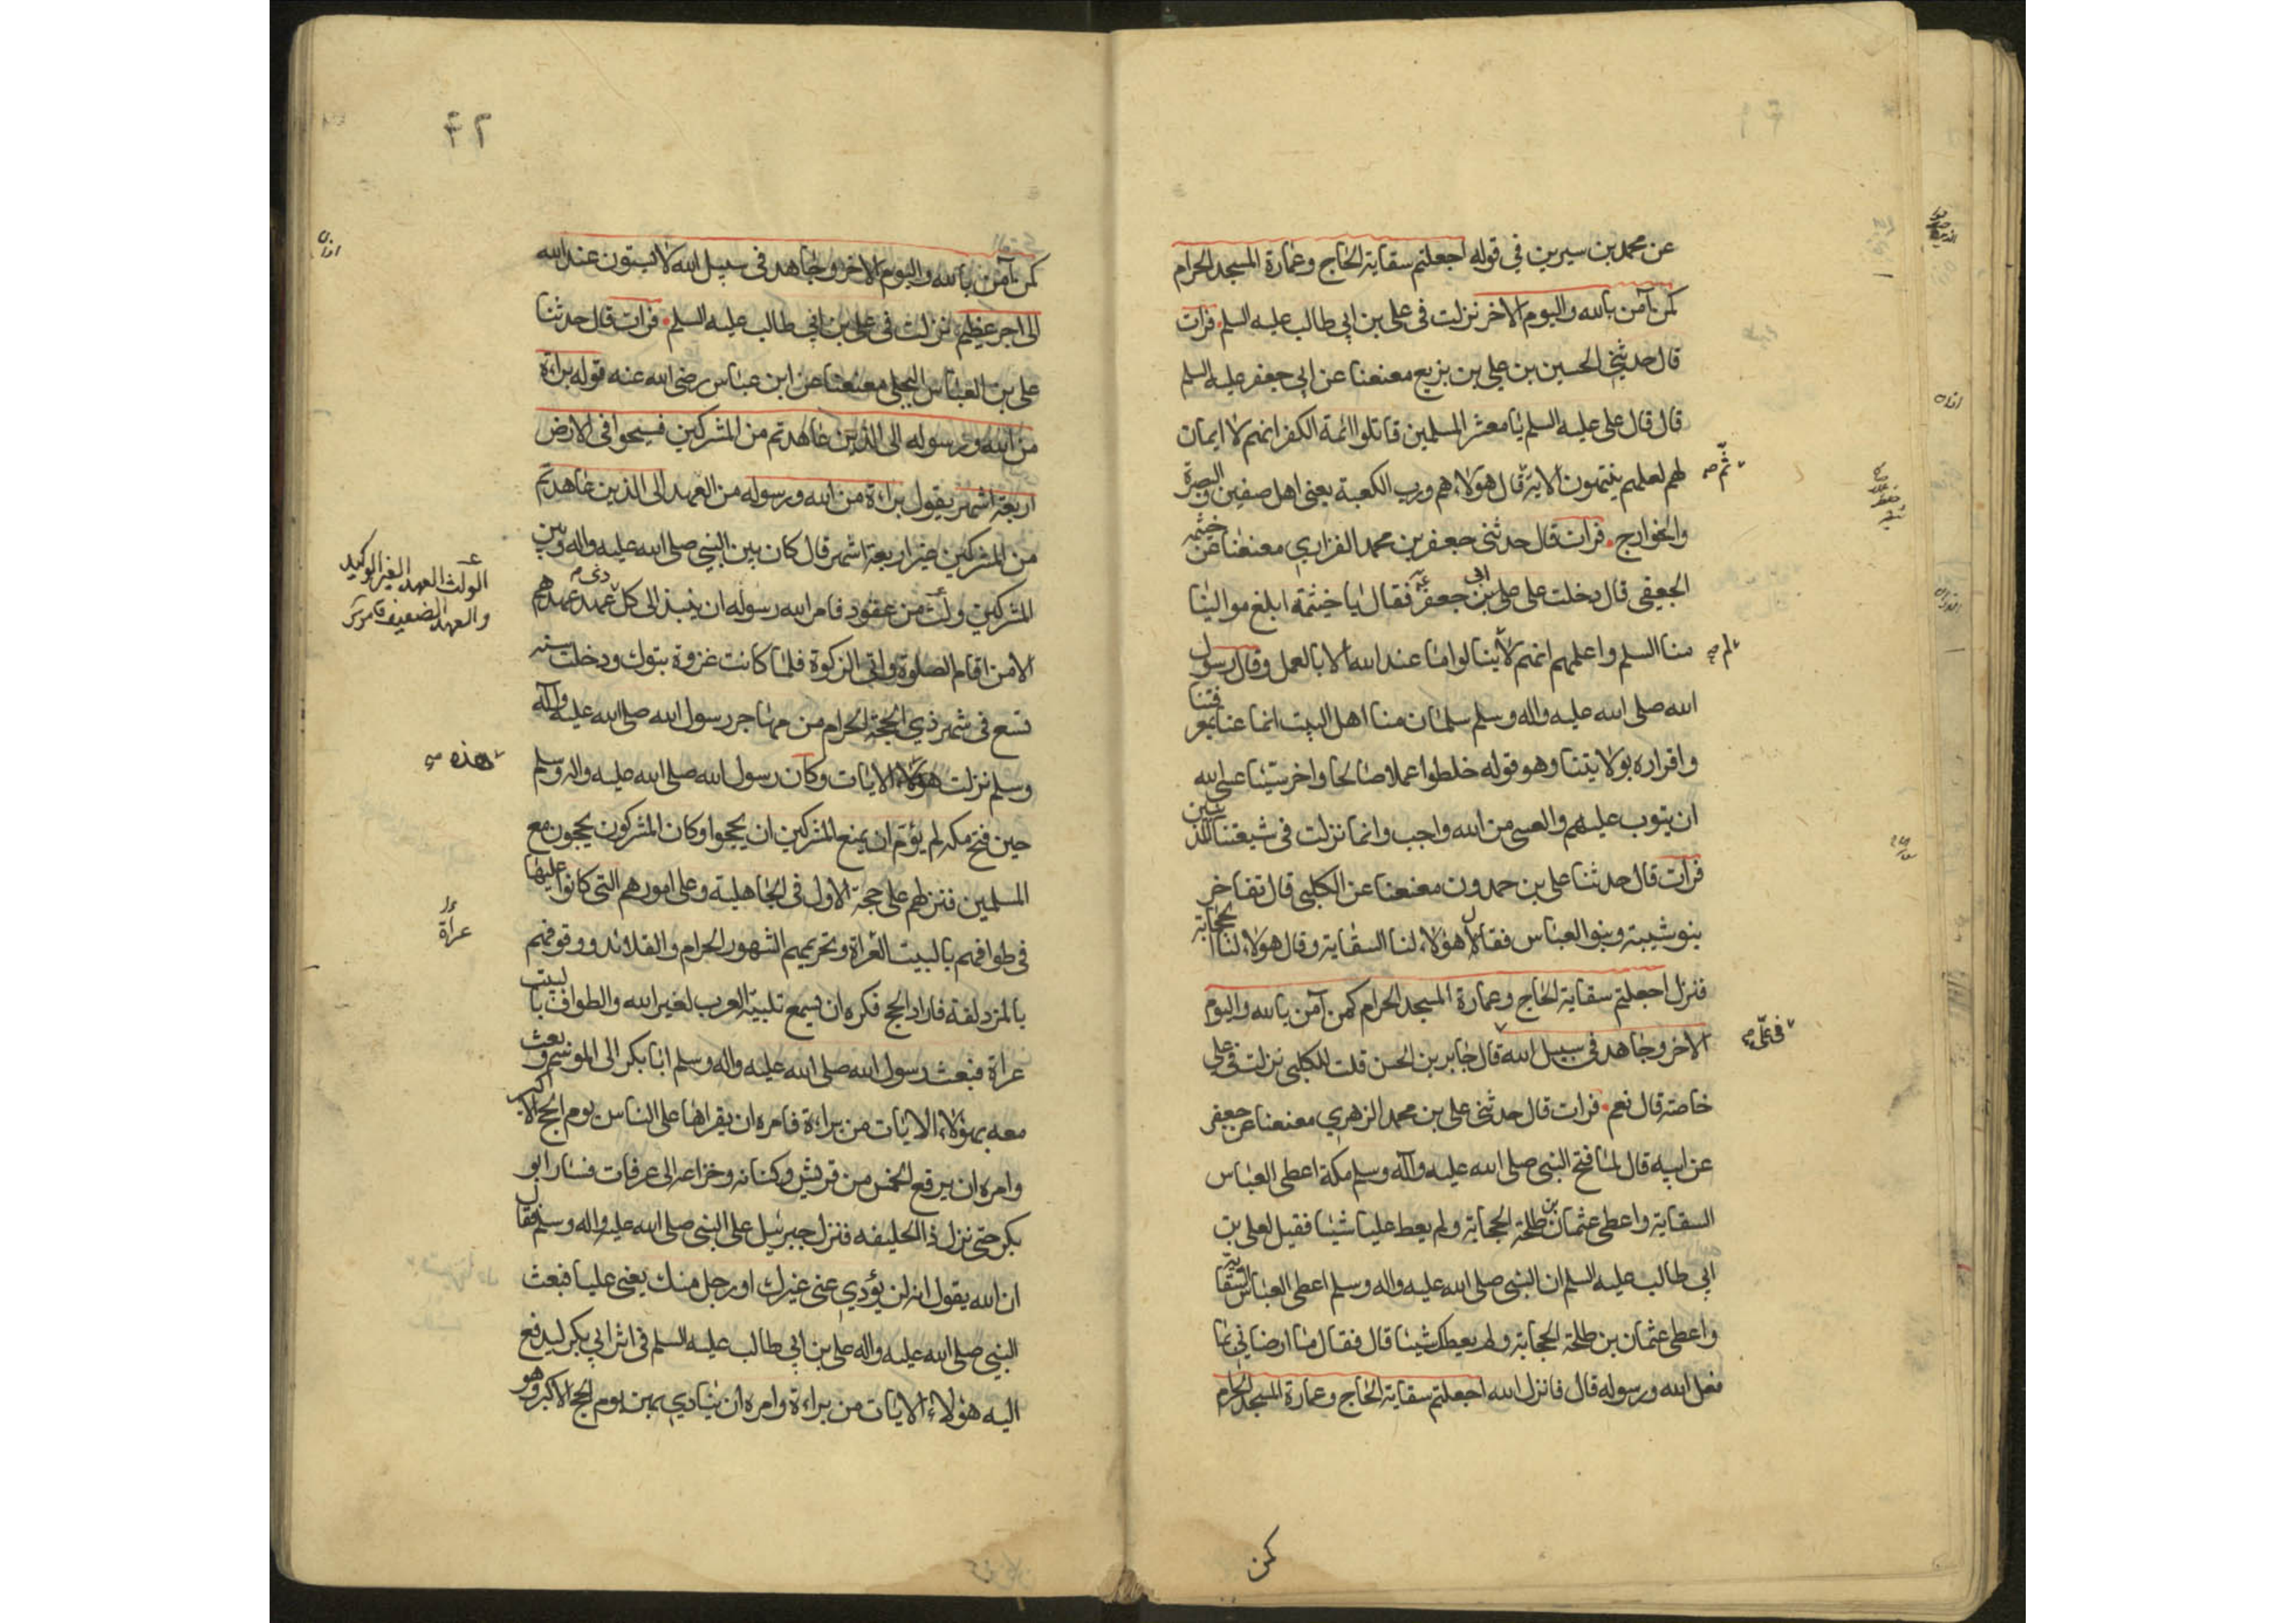 عن محمد بن سيرين في قوله اجعلتم سقاية الحاج وعمارة المسجد الحرام
كمن آمن بالله واليوم الاخر نزلت في علي بن ابي طالب عليه السلم فرات
قال حدثني الحسين بن علي بن بزيع معنعنا عن ابي جعفر عليه السلم
قال قال علي عليه السلم يا معشر المسلمين قاتلوا ائمة الكفر انهم لا ايمان
لهم لعلهم ينتهون الاية قال هؤلاء هم ورب الكعبة يعني اهل صفين والبصرة
ثم صح
والخوارج فرات قال حدثني جعفر بن محمد الفزاري معنعنا عن خيثمه
الجعفي قال دخلت على ابي جعفر فقال يا خيثمة ابلغ موالينا
منا السلم واعلمهم انهم لا ينالوا ما عند الله الا بالعمل وقال رسول
لم صح
الله صلى الله عليه واله وسلم سلمان منا اهل البيت انما عنا بمعرفتنا
واقراره بولايتنا وهو قوله خلطوا عملا صالحا واخر سيئا عسى الله
ان يتوب عليهم والعسى من الله واجب وانما نزلت في شيعتنا المذنبين
فرات قال حدثنا علي بن حمدون معنعنا عن الكلبي قال تفاخر
بنو شيبة وبنو العباس فقال هؤلاء لنا السقاية وقال هولاء لنا الحجابة
فنزل اجعلتم سقاية الحاج وعمارة المسجد الحرام كمن آمن بالله واليوم
الاخر وجاهد في سبيل الله قال جابر بن الحسن قلت للكلبي نزلت في علي
في علي صح
خاصة قال نعم فرات قال حدثني علي بن محمد الزهري معنعنا عن جعفر
عن ابيه قال لما فتح النبي صلى الله عليه وآله وسلم مكة اعطى العباس
السقاية واعطى عثمان بن طلحة الحجابة ولم يعط عليا شيئا فقيل لعلي بن
ابي طالب عليه السلم ان النبي صلى الله عليه واله وسلم اعطى العباس السقاية
واعطى عثمان بن طلحة الحجابة ولم يعطك شيئا قال فقال ما ارضاني بما
فعل الله ورسوله قال فانزل الله اجعلتم سقاية الحاج وعمارة المسجد الحرام
كمن
كمن آمن بالله واليوم الاخر وجاهد في سبيل الله لا يستون عند الله
الى اجر عظيم نزلت في علي بن ابي طالب عليه السلم فرات قال حدثنا
علي بن العباس البجلي معنعنا عن ابن عباس رضي الله عنه قوله براءة
من الله ورسوله الى الذين عاهدتم من المشركين فسيحوا في الارض
اربعة اشهر يقول براءة من الله ورسوله من العهد الى الذين عاهدتم
من المشركين غير اربعة اشهر قال كان بين النبي صلى الله عليه واله وبين
المشركين ولث من عقود فامر الله رسوله ان ينبذ الى كل ذي عهد عهدهم
الولث العهد الغير الوكيد
والعهد الضعيف
الا من اقام الصلوة واتى الزكوة فلما كانت غزوة تبوك ودخلت سنه
تسع في شهر ذي الحجة الحرام من مهاجر رسول الله صلى الله عليه وآله
وسلم نزلت هؤلاء الايات وكان رسول الله صلى الله عليه واله وسلم
هذه
حين فتح مكه لم يؤمر ان يمنع المشركين ان يحجوا وكان المشركون يحجون مع
المسلمين فتركهم على حجة الاول في الجاهلية وعلى امورهم التي كانوا عليها
في طوافهم بالبيت العراة وتحريمهم الشهور الحرام والقلائد ووقوفهم
عراة
بالمزدلفة فاراد الحج فكره ان يسمع تلبية العرب لغير الله والطواف بالبيت
عراة فبعث رسول الله صلى الله عليه واله وسلم ابا بكر الى الموسم وبعث
معه بهؤلاء الايات من براءة فامره ان يقراها على الناس يوم الحج الاكبر
وامره ان يرفع الحمس من قريش وكنانه وخزاعه الى عرفات فسار ابو
بكر حتى نزل ذا الحليفه فنزل جبرئيل على النبي صلى الله عليه واله وسلم فقال
ان الله يقول انه لن يؤدي عني غيرك او رجل منك يعني عليا فبعث
النبي صلى الله عليه واله علي بن ابي طالب عليه السلم في اثر ابي بكر ليدفع
اليه هؤلاء الايات من براءة وامره ان ينادي بهن يوم الحج الاكبر وهو